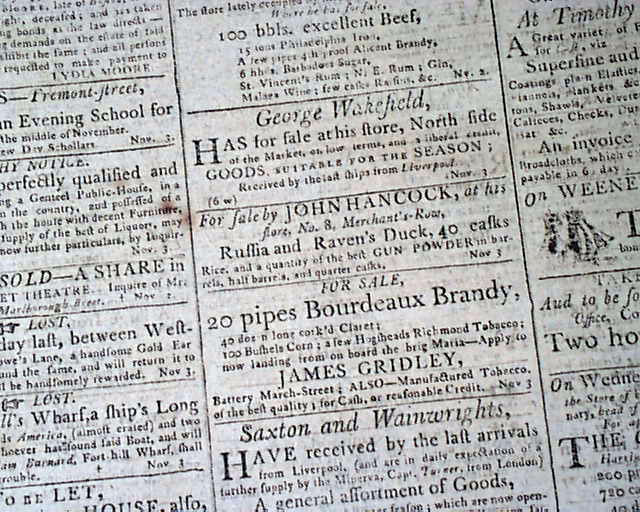 deceased; and has taken
bonds as the law directs—
demands on the estate of said
exhibit the same; and all persons
requested to make payment to
LYDIA MOORE.
S—Tremont-street,
Evening School for
the middle of November.
Day Scholars. Nov. 3.
NOTICE.
perfectly qualified and
a Genteel Public-House, in a
the country, and possessed of a
the house with decent Furniture,
supply of the best of Liquor, may
now further particulars, by Inquir-
Nov. 3.
SOLD—A SHARE in
THEATRE. Inquire of Mr.
Marlborough-street. Nov 2.
LOST,
day last, between West-
Lane, a handsome Gold Ear
the same, and will return it to
be handsomely rewarded. Nov 3.
LOST.
Wharf, a ship's Long
America, (almost crazed) and two
has found said Boat, and will
Barnard, Fort-hill Wharf, shall
trouble. Nov 3.
TO BE LET,
HOUSE, also,
The store lately occupied
100 bbls. excellent Beef,
15 tons Philadelphia Iron,
A few pipes 4th proof Alicent Brandy,
6 hhds. Barbadoes Sugar,
St. Vincent's Rum; N. E. Rum; Gin,
Malaga Wine; few casks Raisins, &c. No. 2.
George Wakefield,
HAS for sale at his store, North side
of the Market, on low terms, and a liberal credit,
GOODS, SUITABLE FOR THE SEASON;
Received by the last ships from Liverpool.
(6 w) Nov. 3
For sale by JOHN HANCOCK, at his
store, No. 8, Merchant's-Row,
Russia and Raven's Duck, 40 casks
Rice, and a quantity of the best GUN POWDER in bar-
rels, half barrels, and quarter casks. Nov 3
FOR SALE,
20 pipes Bourdeaux Brandy,
40 dozn long cork'd Claret;
100 Bushels Corn; a few Hogsheads Richmond Tobacco;
now landing from on board the brig Maria—Apply to
JAMES GRIDLEY,
Battery March-Street; ALSO—Manufactured Tobacco,
of the best quality; for Cash, or reasonable Credit. Nov 3
Saxton and Wainwrights,
HAVE received by the last arrivals
from Liverpool, (and are in daily expectation of a
further supply by the Minerva, Capt. Turner, from London)
A general assortment of Goods,
season; which are now open-
At Timothy
A Great variety of
for Cash, viz
Superfine aud
Coatings plain Elastic
Flannels, Blankets &c
Shawls, Velvets
Calicoes, Checks,
&c.
An invoice
Broadcloths, which
payable in 6 day
On WEDNE
T
TAKE
And to be so
Office, Co
Two ho
On Wednes
the Store of
nary, head of
For
THE
200
720